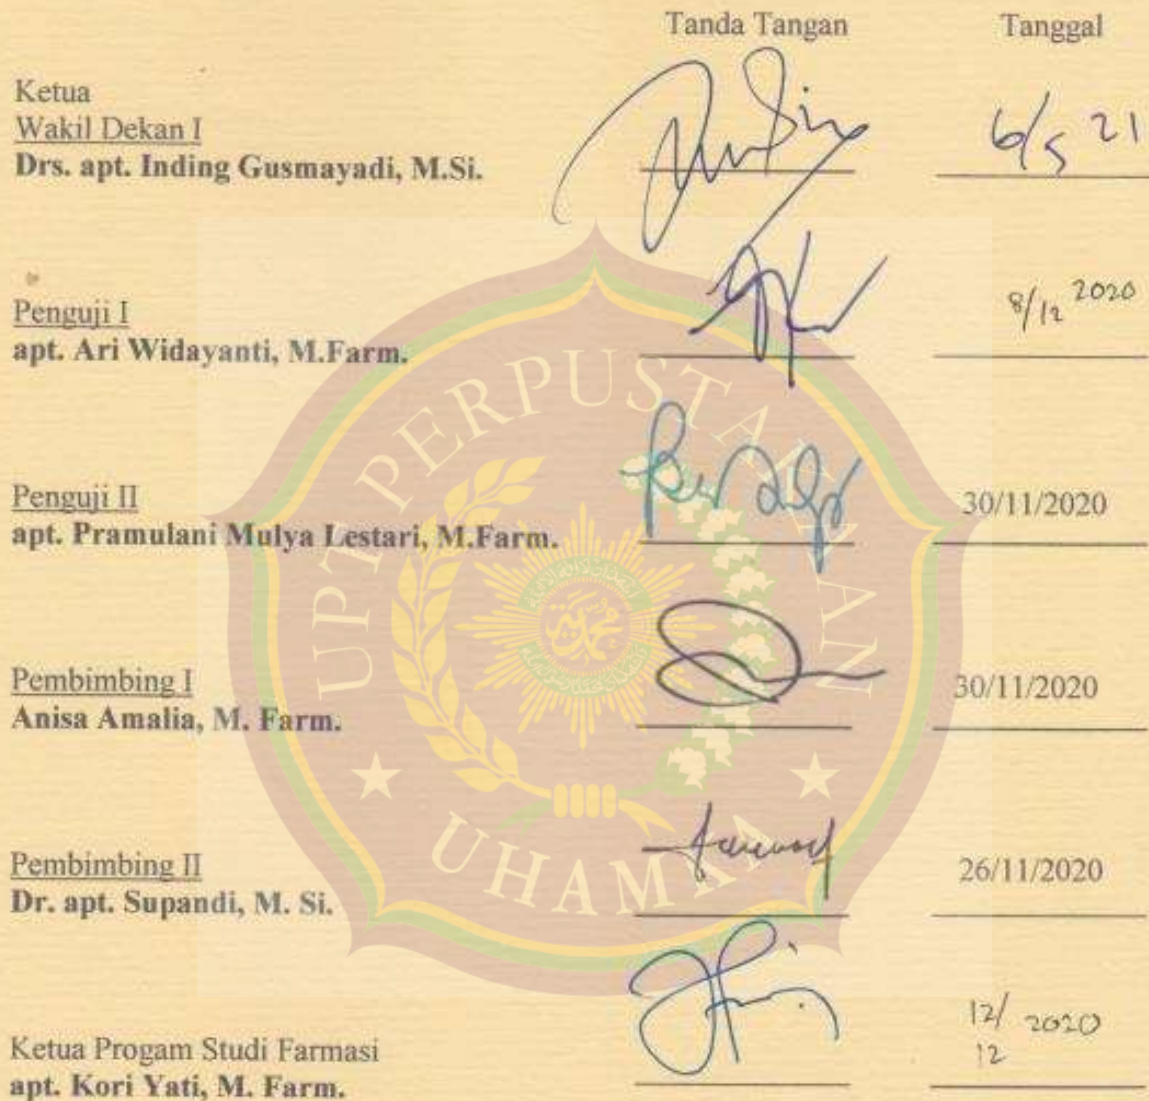 Tanda Tangan Tanggal
Ketua
Wakil Dekan I
Drs. apt. Inding Gusmayadi, M.Si. 6/5 21
Penguji I
apt. Ari Widayanti, M.Farm. 8/12 2020
Penguji II
apt. Pramulani Mulya Lestari, M.Farm. 30/11/2020
Pembimbing I
Anisa Amalia, M. Farm. 30/11/2020
Pembimbing II
Dr. apt. Supandi, M. Si. 26/11/2020
Ketua Progam Studi Farmasi
apt. Kori Yati, M. Farm. 12/12 2020
UPT PERPUSTAKAAN
UHAMKA